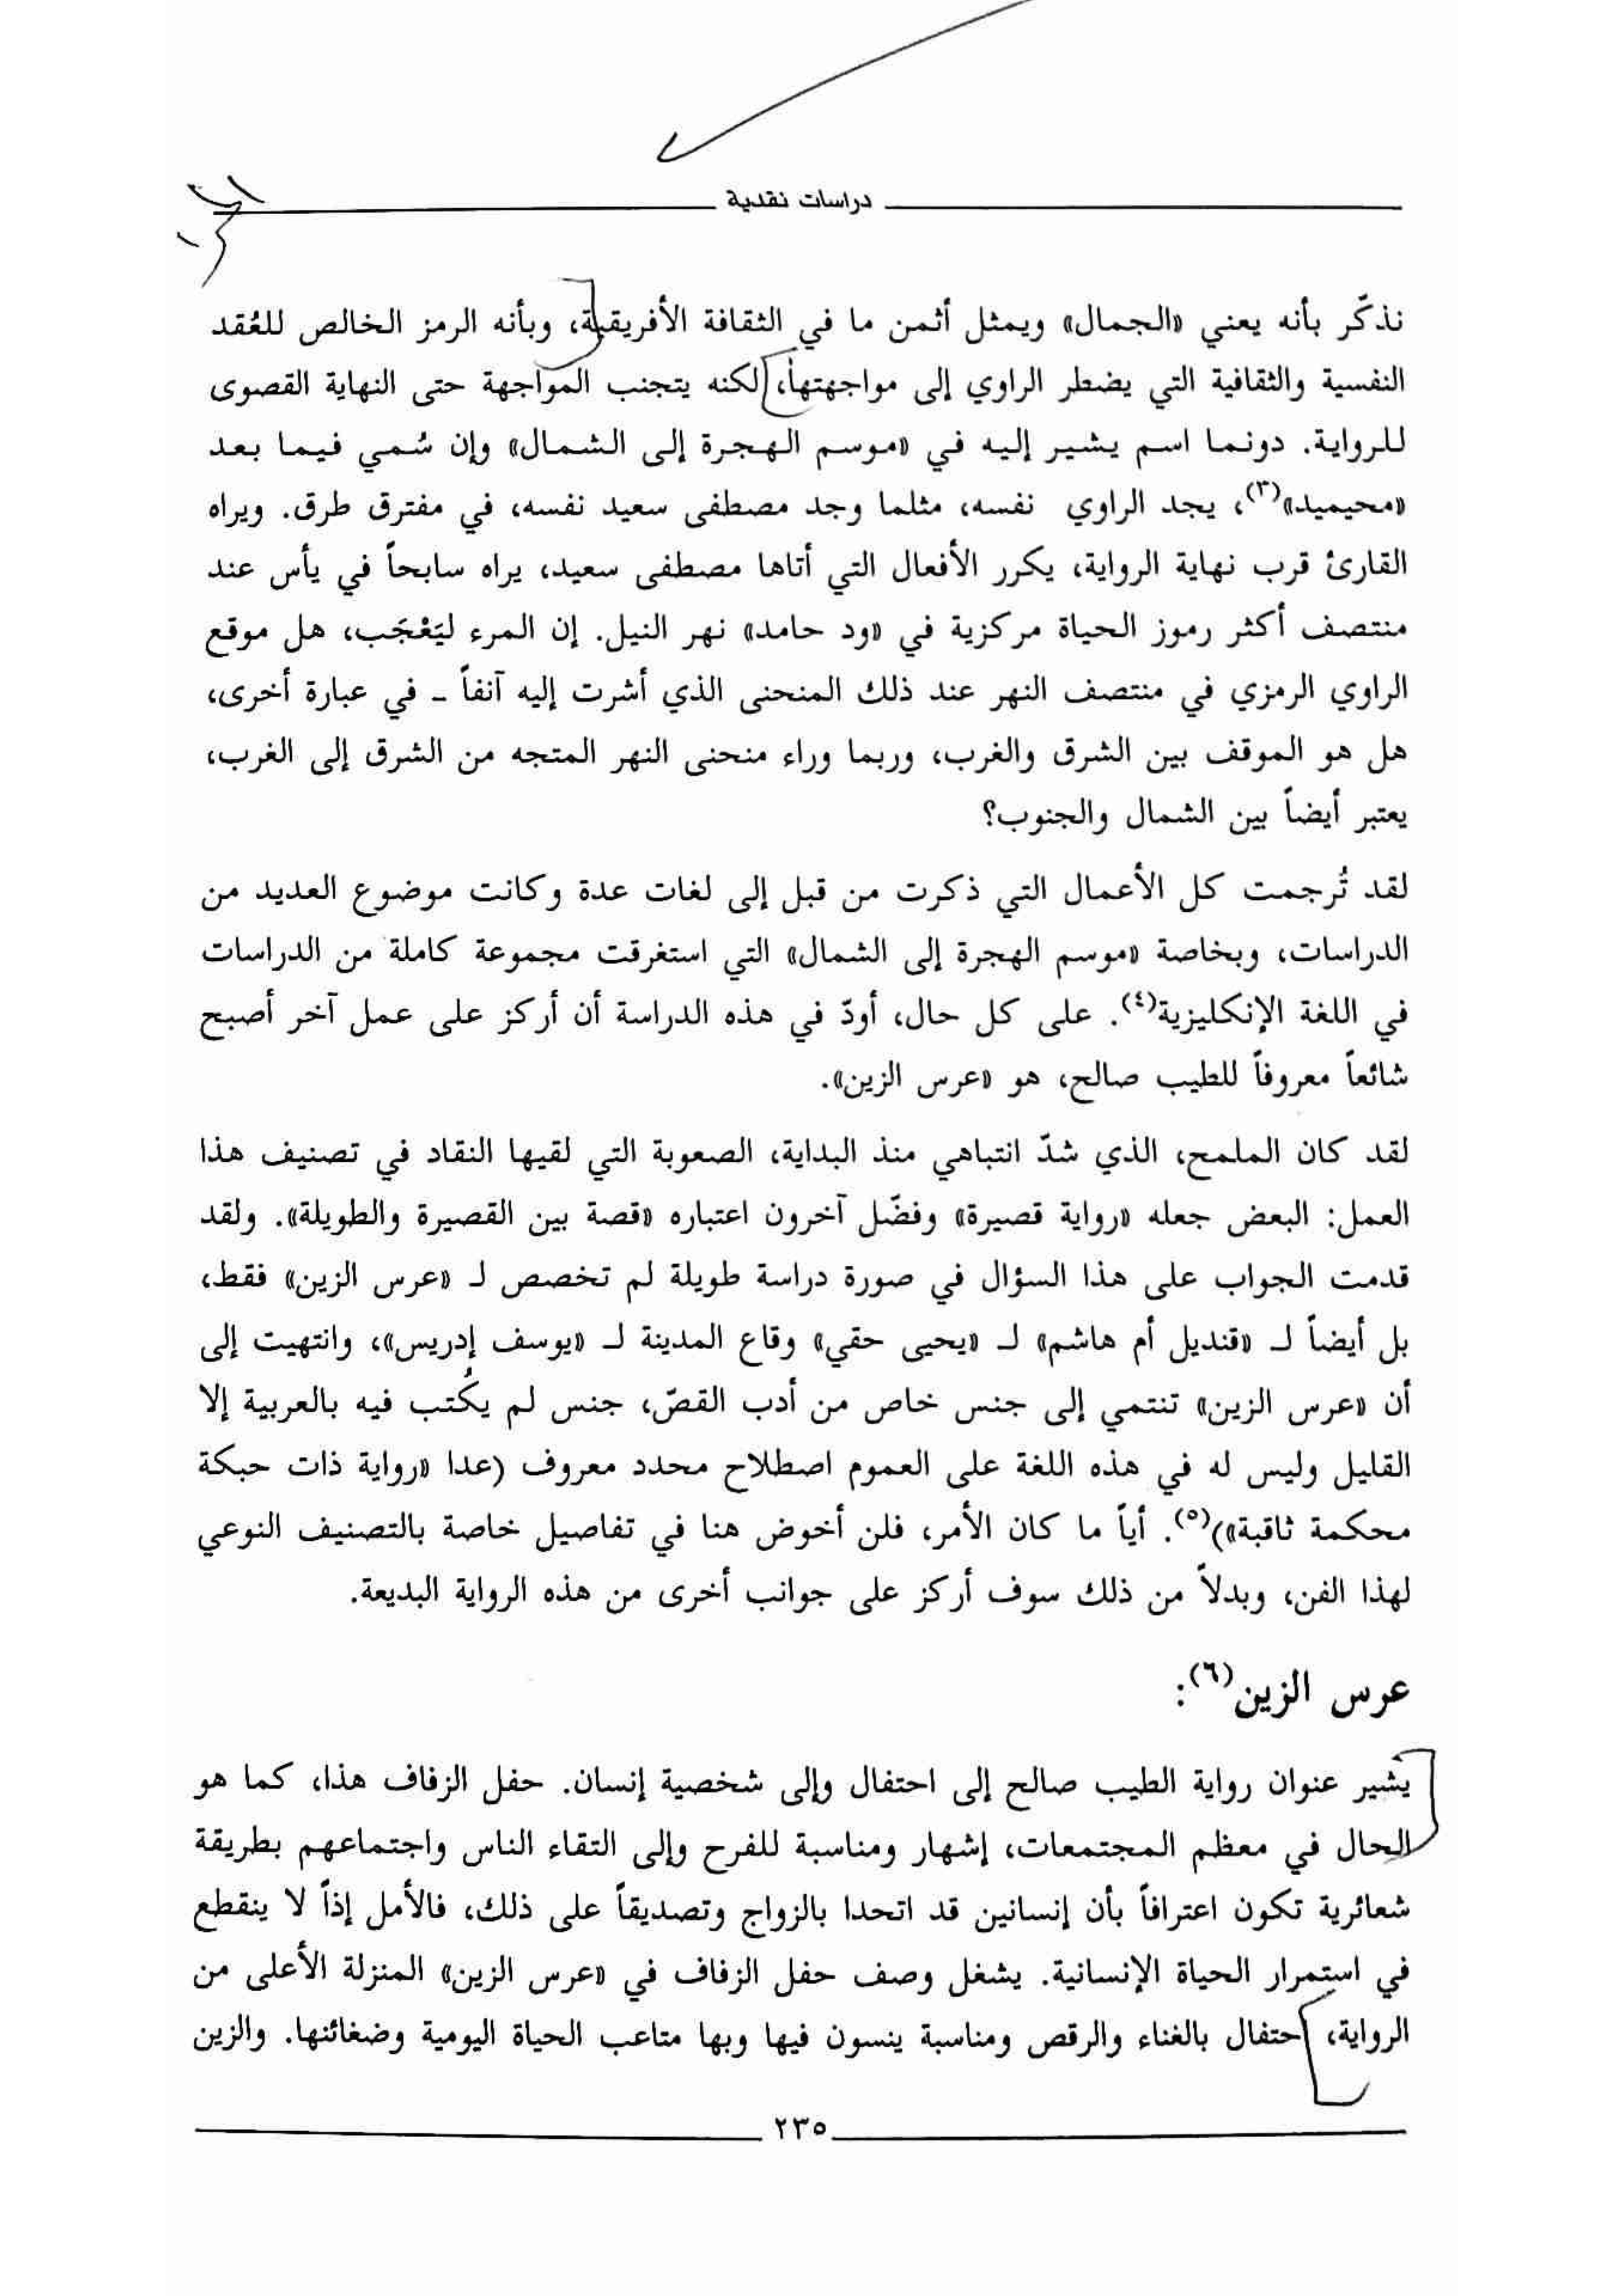 دراسات نقدية
نذكّر بأنه يعني «الجمال» ويمثل أثمن ما في الثقافة الأفريقية، وبأنه الرمز الخالص للعُقد
النفسية والثقافية التي يضطر الراوي إلى مواجهتها، لكنه يتجنب المواجهة حتى النهاية القصوى
للرواية. دونما اسم يشير إليه في «موسم الهجرة إلى الشمال» وإن سُمي فيما بعد
«محيميد»(٣)، يجد الراوي نفسه، مثلما وجد مصطفى سعيد نفسه، في مفترق طرق. ويراه
القارئ قرب نهاية الرواية، يكرر الأفعال التي أتاها مصطفى سعيد، يراه سابحاً في يأس عند
منتصف أكثر رموز الحياة مركزية في «ود حامد» نهر النيل. إن المرء ليَعْجَب، هل موقع
الراوي الرمزي في منتصف النهر عند ذلك المنحنى الذي أشرت إليه آنفاً - في عبارة أخرى،
هل هو الموقف بين الشرق والغرب، وربما وراء منحنى النهر المتجه من الشرق إلى الغرب،
يعتبر أيضاً بين الشمال والجنوب؟
لقد تُرجمت كل الأعمال التي ذكرت من قبل إلى لغات عدة وكانت موضوع العديد من
الدراسات، وبخاصة «موسم الهجرة إلى الشمال» التي استغرقت مجموعة كاملة من الدراسات
في اللغة الإنكليزية(٤). على كل حال، أودّ في هذه الدراسة أن أركز على عمل آخر أصبح
شائعاً معروفاً للطيب صالح، هو «عرس الزين».
لقد كان الملمح، الذي شدّ انتباهي منذ البداية، الصعوبة التي لقيها النقاد في تصنيف هذا
العمل: البعض جعله «رواية قصيرة» وفضّل آخرون اعتباره «قصة بين القصيرة والطويلة». ولقد
قدمت الجواب على هذا السؤال في صورة دراسة طويلة لم تخصص لـ «عرس الزين» فقط،
بل أيضاً لـ «قنديل أم هاشم» لـ «يحيى حقي» وقاع المدينة لـ «يوسف إدريس»، وانتهيت إلى
أن «عرس الزين» تنتمي إلى جنس خاص من أدب القصّ، جنس لم يكُتب فيه بالعربية إلا
القليل وليس له في هذه اللغة على العموم اصطلاح محدد معروف (عدا «رواية ذات حبكة
محكمة ثاقبة»)(٥). أياً ما كان الأمر، فلن أخوض هنا في تفاصيل خاصة بالتصنيف النوعي
لهذا الفن، وبدلاً من ذلك سوف أركز على جوانب أخرى من هذه الرواية البديعة.
عرس الزين(٦):
يشير عنوان رواية الطيب صالح إلى احتفال وإلى شخصية إنسان. حفل الزفاف هذا، كما هو
الحال في معظم المجتمعات، إشهار ومناسبة للفرح وإلى التقاء الناس واجتماعهم بطريقة
شعائرية تكون اعترافاً بأن إنسانين قد اتحدا بالزواج وتصديقاً على ذلك، فالأمل إذاً لا ينقطع
في استمرار الحياة الإنسانية. يشغل وصف حفل الزفاف في «عرس الزين» المنزلة الأعلى من
الرواية، احتفال بالغناء والرقص ومناسبة ينسون فيها وبها متاعب الحياة اليومية وضغائنها. والزين
٢٣٥